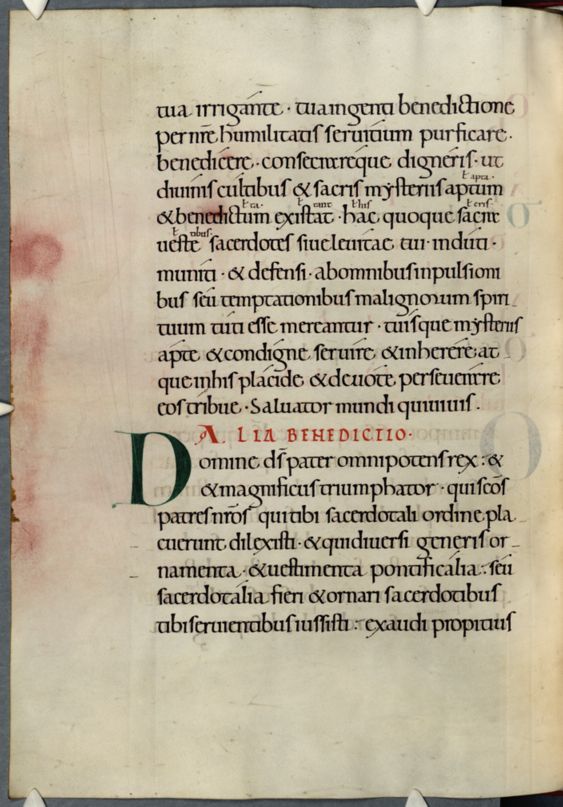 tua irrigante · tua ingenti benedictione
per nr̄e humilitatis seruitium purficare ·
benedicere · consecrareque digneris · ut
ł apta ·
diuinis cultibus & sacris mysteriis aptum
ł ta · ł tint ł his ł cris ·
& benedictum existat · hac quoque sacra
ł tibus ·
ueste sacerdotes siue leuitae tui · induti ·
muniti · & defensi · ab omnibus inpulsioni
bus seu temptationibus malignorum spiri
tuum tuti esse mereantur · tuisque mysteriis
apte & condigne seruire & inherere at
que in his placide & deuote perseuerare
eos tribue · Saluator mundi qui uiuis ·
ALIA BENEDICTIO ·
Domine d̄s pater omnipotens rex : &
& magnificus triumphator · qui sc̄os
patres nr̄os qui tibi sacerdotali ordine pla
cuerunt dilexisti · & qui diuersi generis or
namenta · & uestimenta pontificalia · seu
sacerdotalia fieri & ornari sacerdotibus
tibi seruientibus iussisti : exaudi propitius